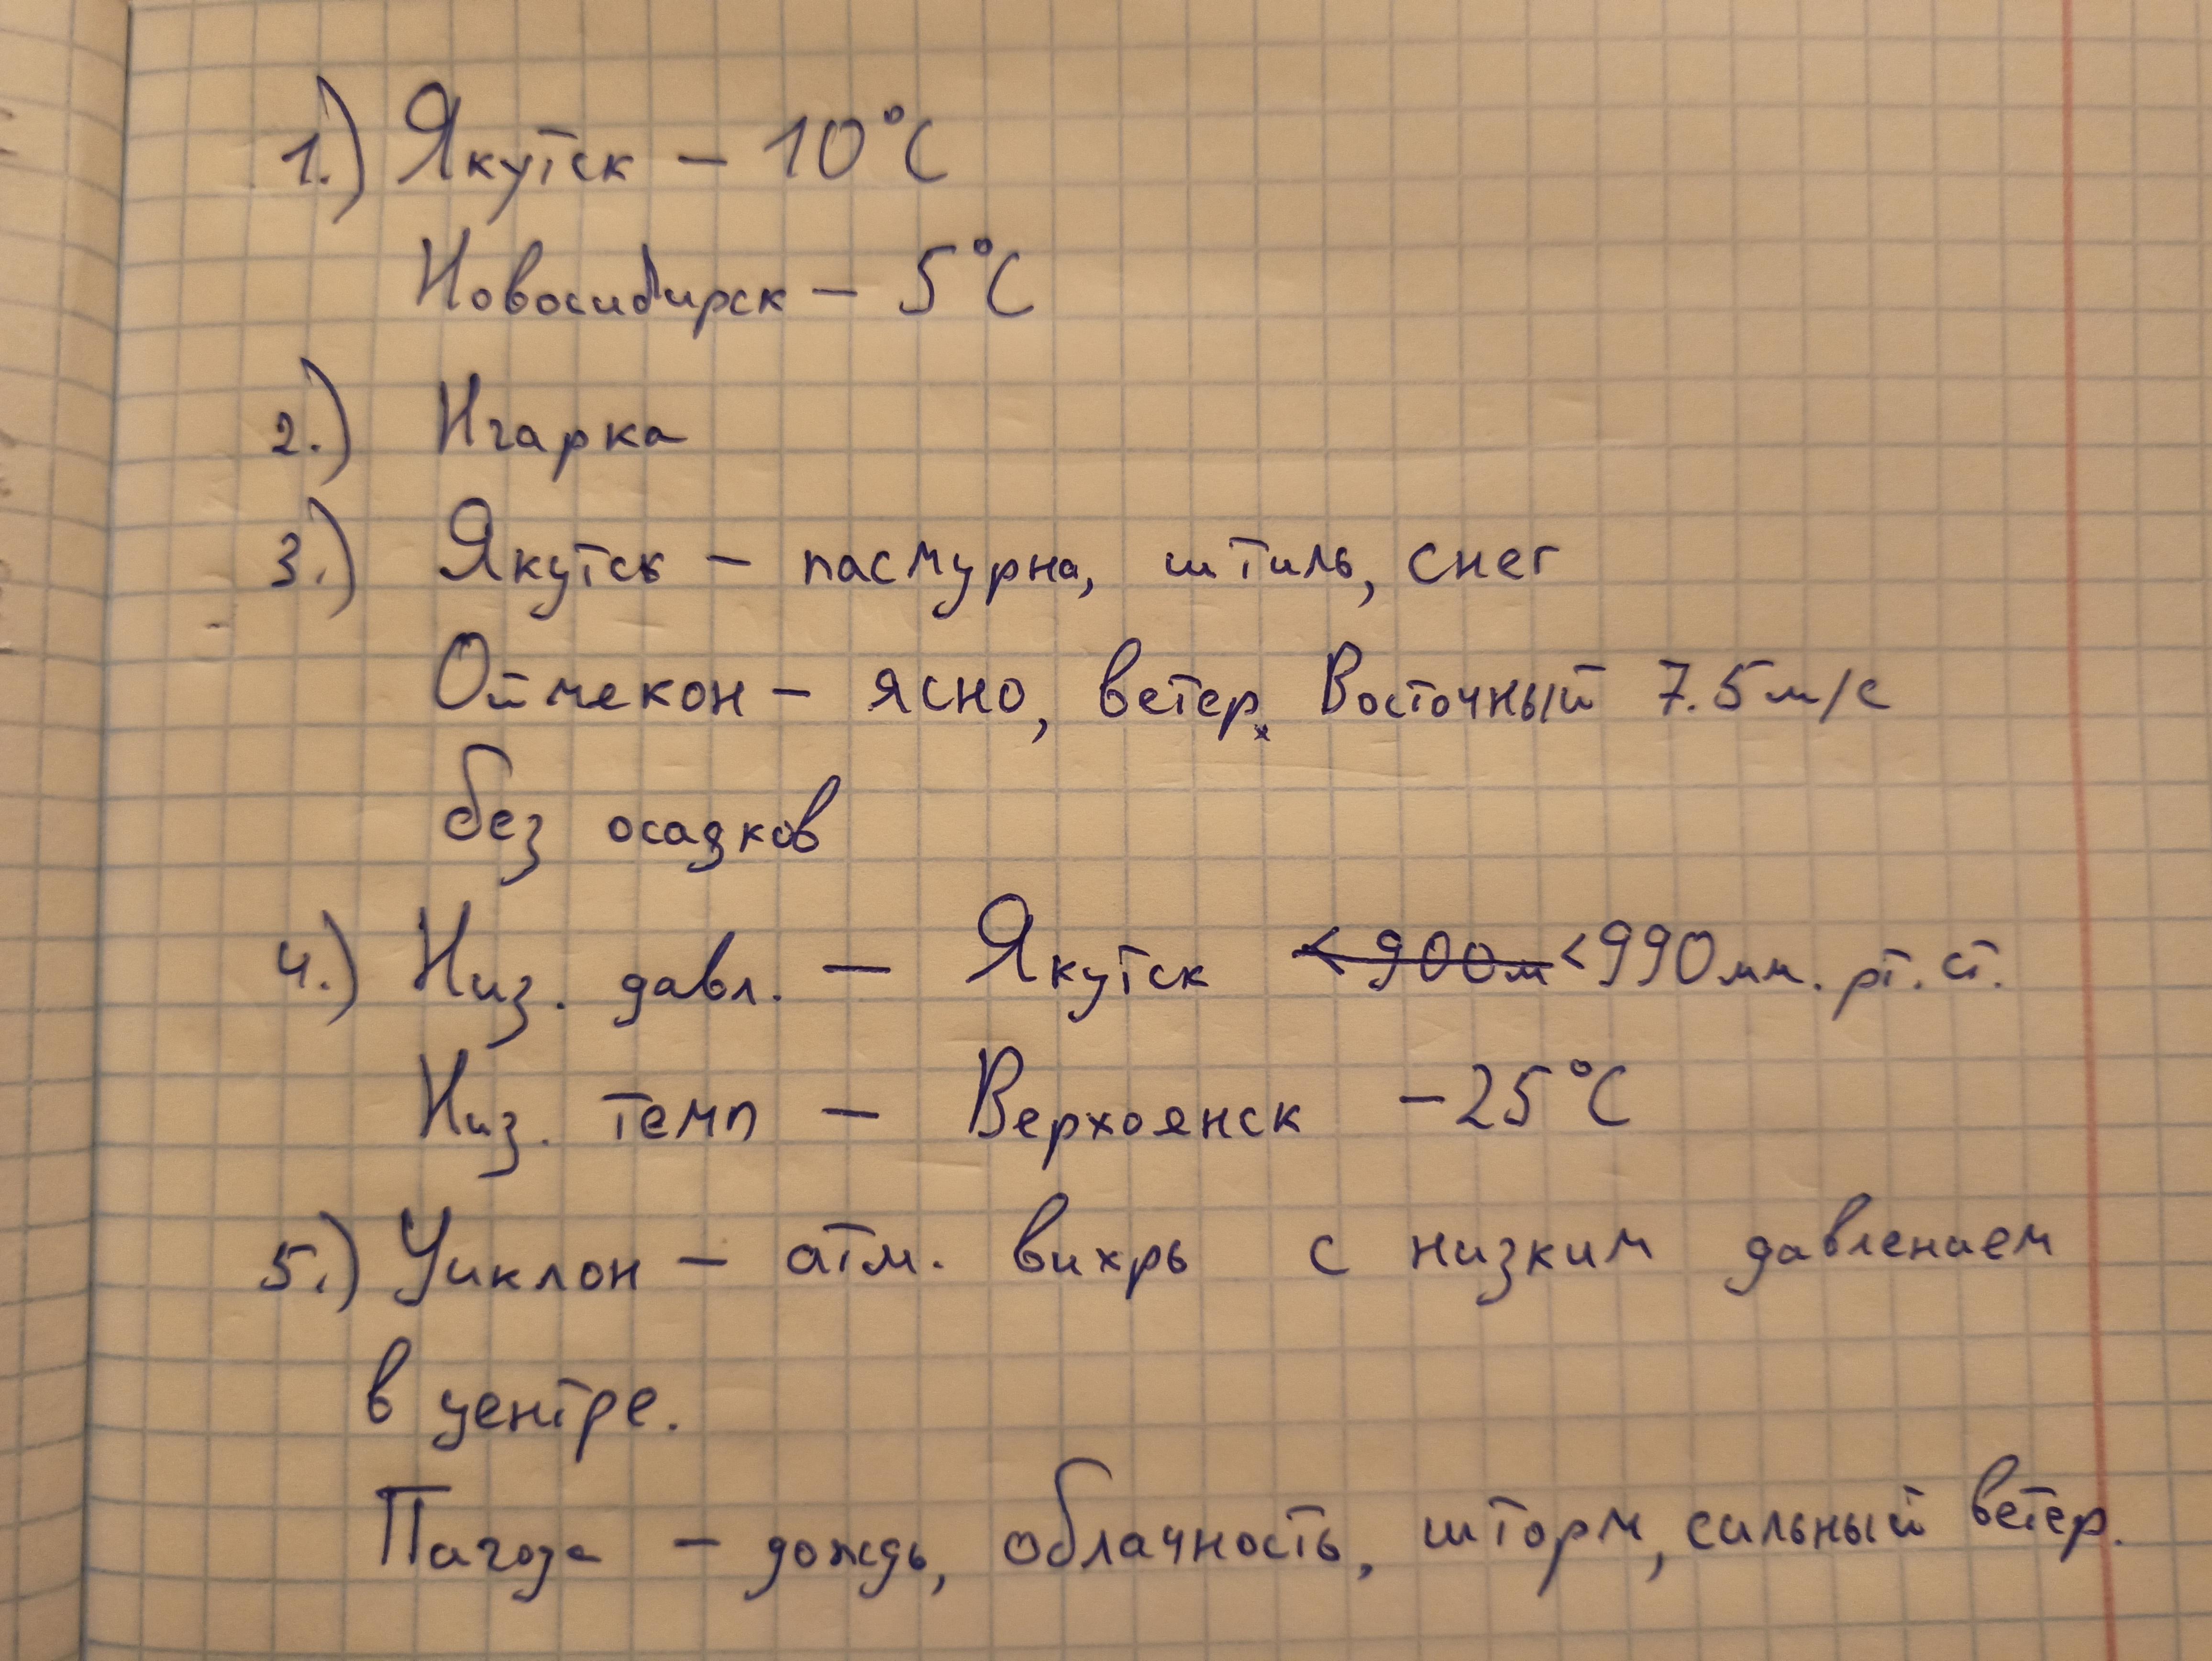 1.) Якутск – 10°C
Новосибирск – 5°C
2.) Игарка
3.) Якутск – пасмурна, штиль, снег
Оймекон – ясно, ветер, Восточный 7.5 м/с
без осадков
4.) Низ. давл. – Якутск < 900м < 990 мм. рт. ст.
Низ. темп – Верхоянск –25°C
5.) Циклон – атм. вихрь с низким давлением
в центре.
Пагода – дождь, облачность, шторм, сильный ветер.